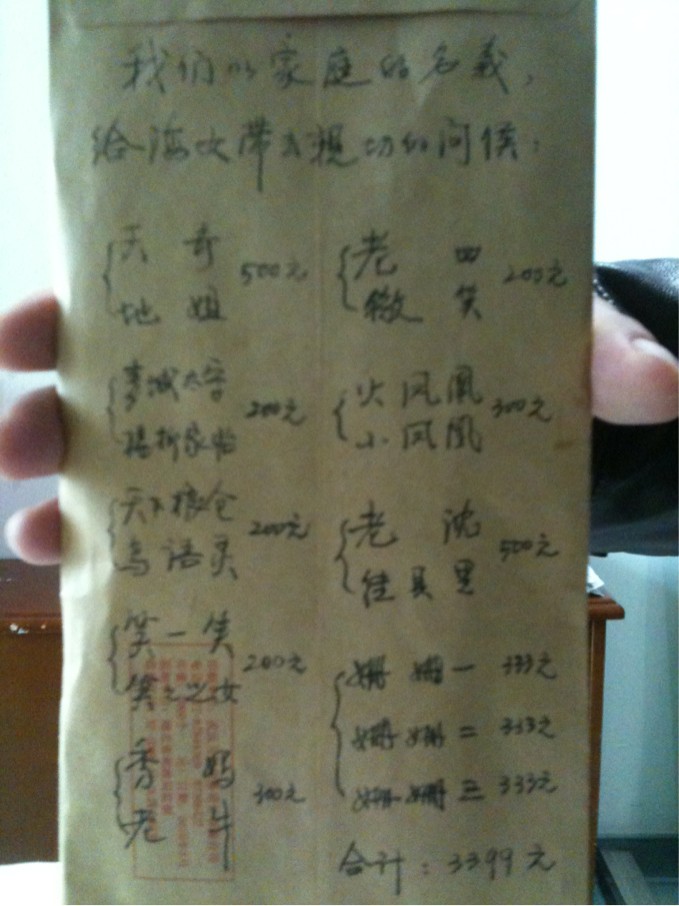 我们以家庭的名义，
给海女带去亲切的问候：
天奇
地姐
500元
李城太守
杨柳家怡
200元
天下粮仓
鸟语灵
200元
笑一笑
笑之女
200元
香妈
老牛
300元
老四
微笑
200元
火凤凰
小凤凰
300元
老沈
佳县里
500元
姗姗一 333元
姗姗二 333元
姗姗三 333元
合计：3399元